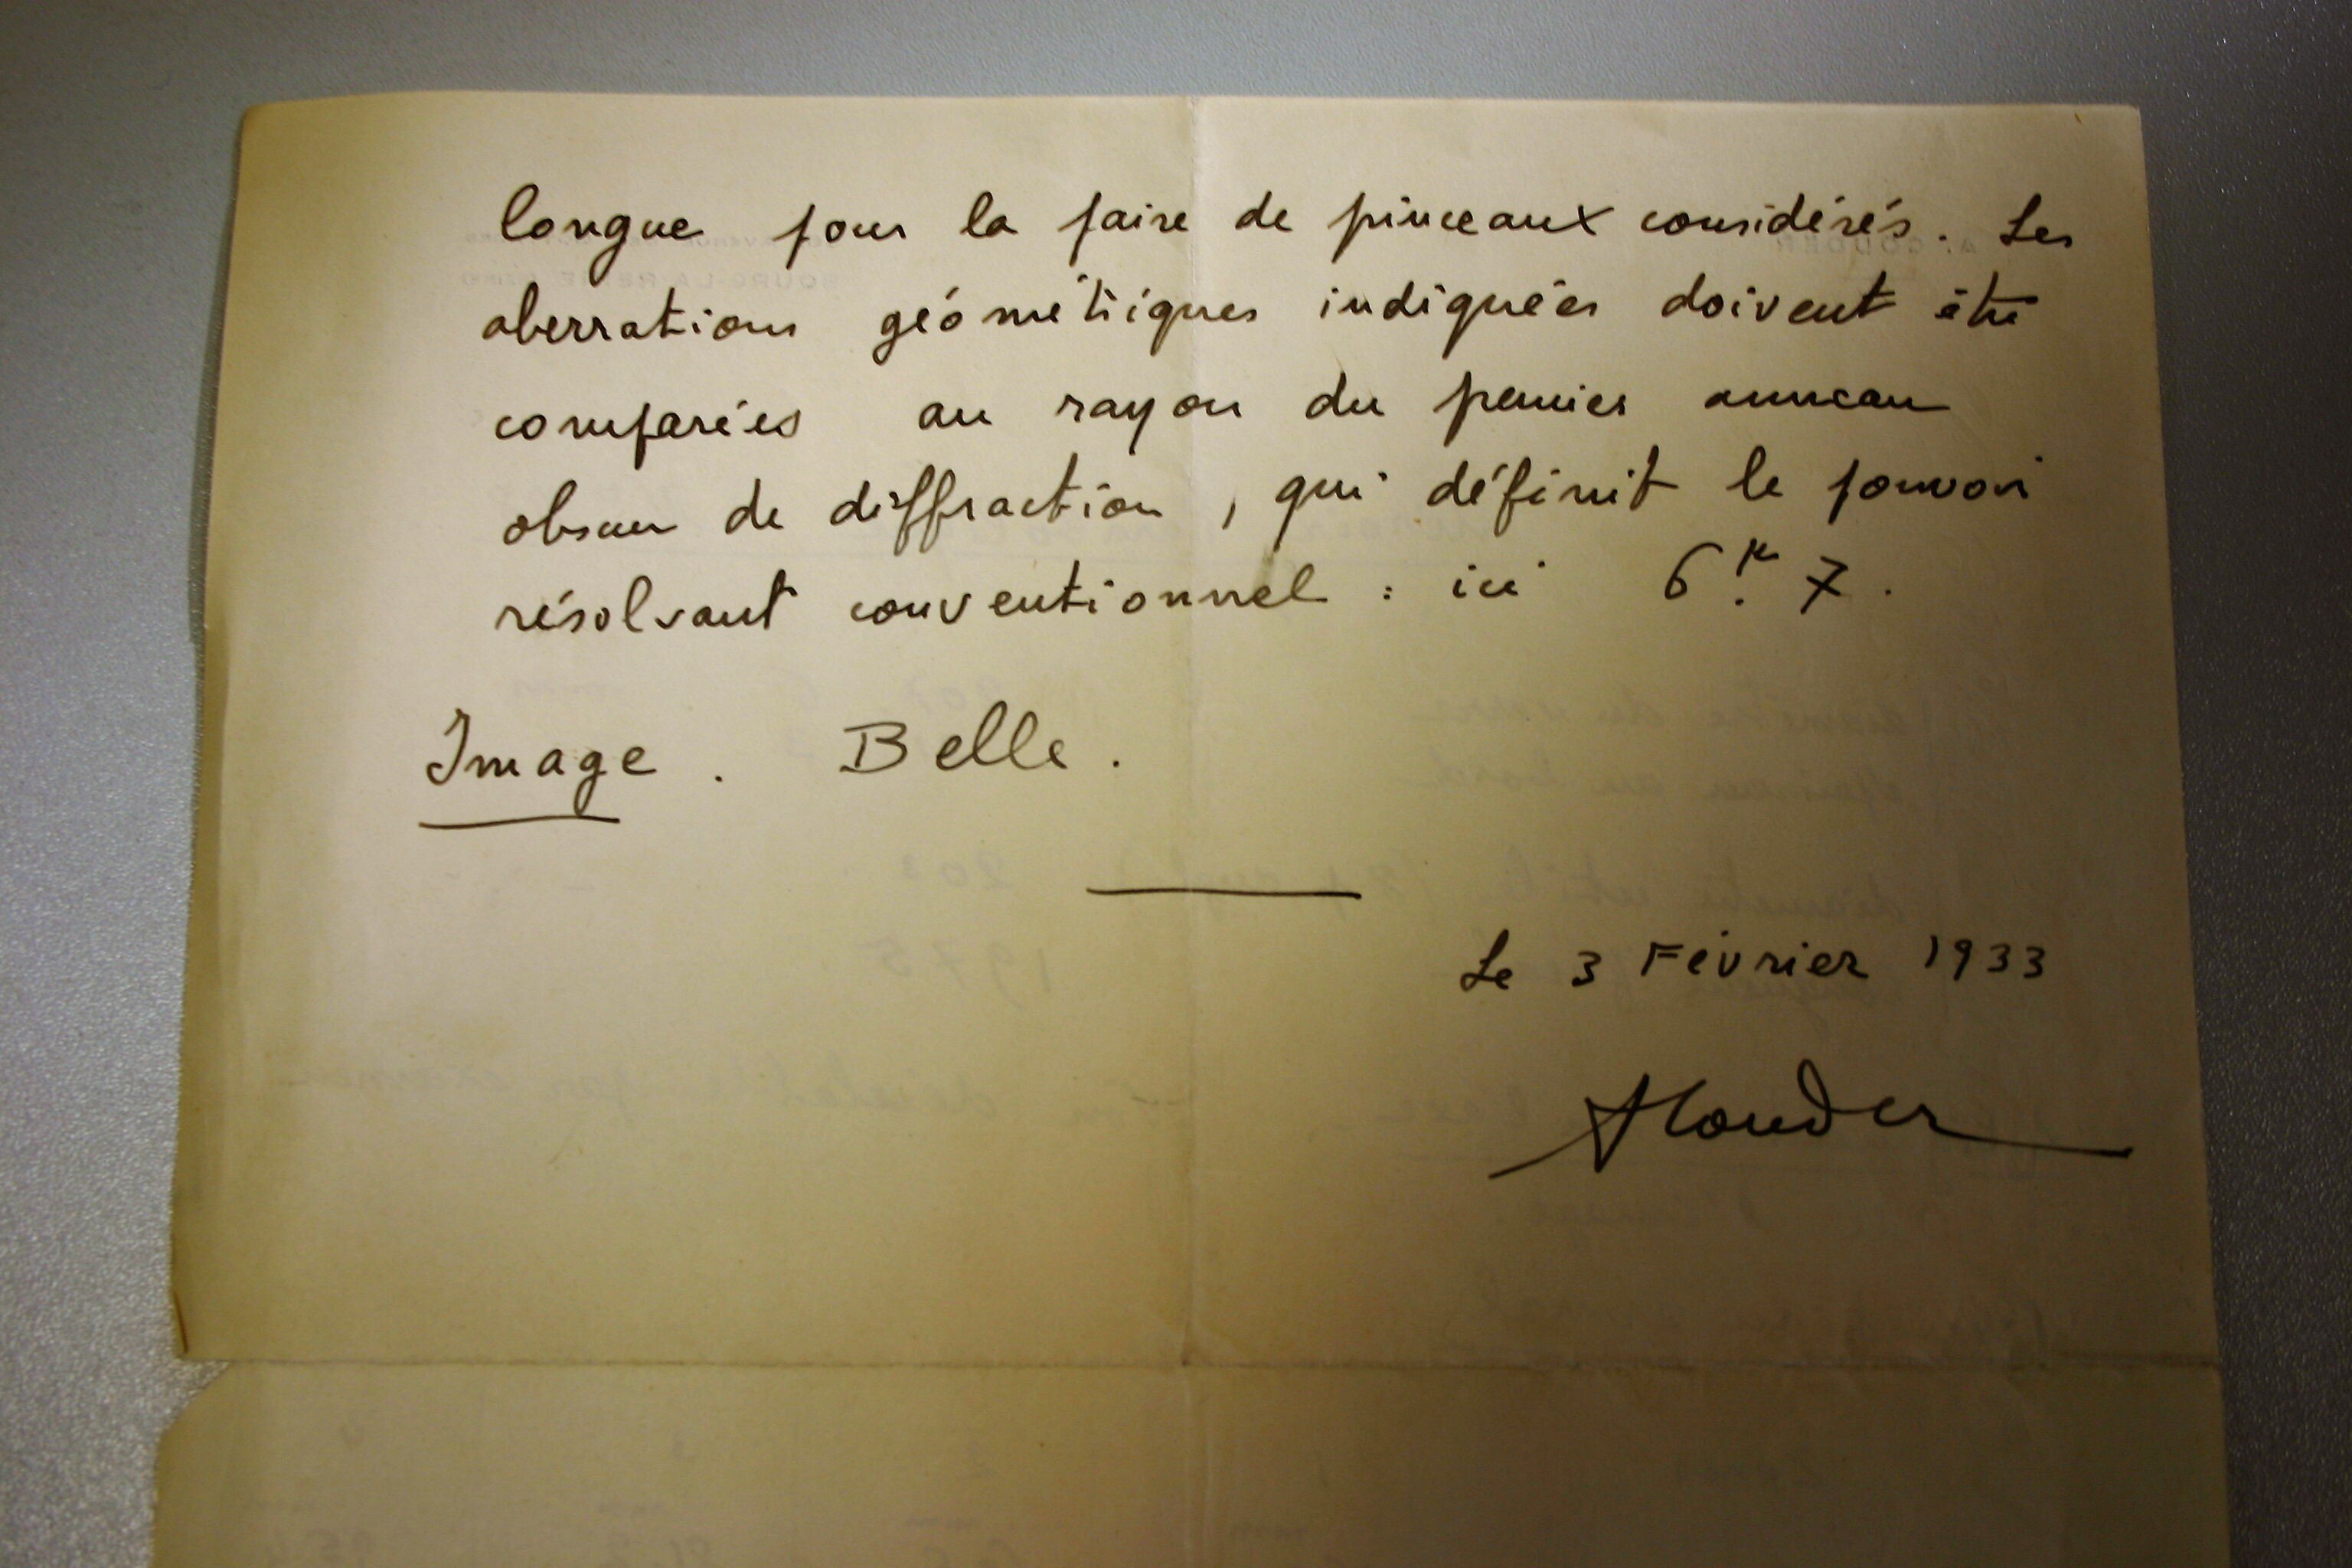 longue pour la paire de pinceaux considérés. Les
aberrations géométriques indiquées doivent être
comparées au rayon du premier anneau
obscur de diffraction, qui définit le pouvoir
résolvant conventionnel : ici 6.μ 7.
Image. Belle.
Le 3 Février 1933
ACouder